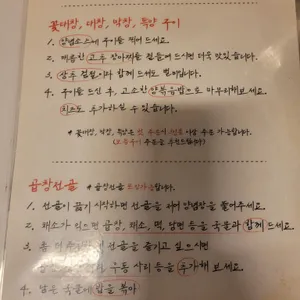 꽃대창, 대창, 막창, 특양 구이
1. 양념소스에 구이를 찍어 드세요.
2. 매콤한 고추 장아찌를 곁들여 드시면 더욱 맛있습니다.
3. 상추 겉절이와 함께 드셔도 별미입니다.
4. 구이를 드신 후, 고소한 양볶음밥으로 마무리해보세요.
치즈도 추가하실 수 있습니다.
* 꽃대창, 막창, 특양은 첫 주문에 사용 가능합니다.
(모듬구이 주문을 추천드립니다)
곱창전골
* 곱창전골
1. 전골이 끓기 시작하면 전골을 저어 양념장을 풀어주세요.
2. 채소가 익으면 곱창, 채소, 떡, 당면 등을 국물과 함께 드세요.
3. 전골을 즐기고 싶으시면
우동 사리 등을 추가해 보세요.
4. 남은 국물에 밥을 볶아